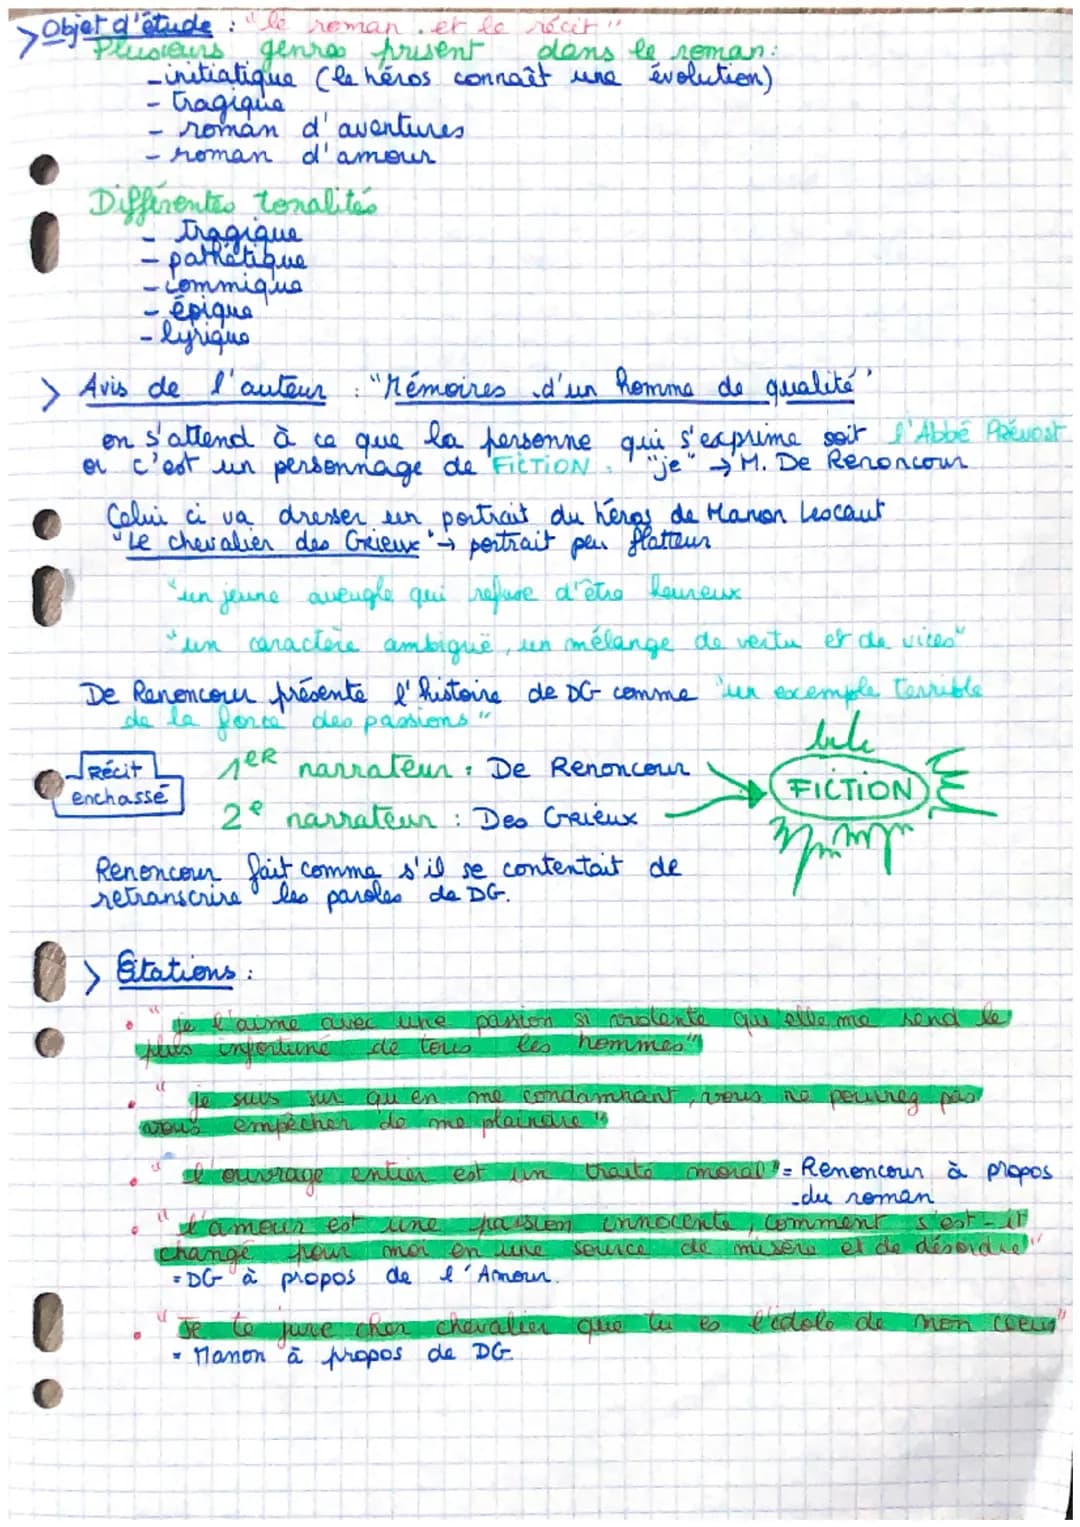 > Objet d'étude : "le roman et le récit"
Plusieurs genres présent dans le roman :
- initiatique (le héros connaît une évolution)
- tragique
- roman d'aventures
- roman d'amour
Différentes tonalités
- tragique
- pathétique
- commique
- épique
- lyrique
> Avis de l'auteur : "Mémoires d'un homme de qualité"
on s'attend à ce que la personne qui s'exprime soit l'Abbé Prévost
or c'est un personnage de FICTION. "je" → M. De Renoncour
Celui ci va dresser un portrait du héros de Manon Lescaut
"Le chevalier des Grieux" → portrait peu flatteur
"un jeune aveugle qui refuse d'être heureux
"un caractère ambiguë, un mélange de vertu et de vices"
De Renoncour présente l'histoire de DG comme "un exemple terrible
de la force des passions"
Récit
enchassé
1ER narrateur : De Renoncour
2e narrateur : Des Grieux
FICTION
Renoncour fait comme s'il se contentait de
retranscrire les paroles de DG.
> Citations :
• "je l'aime avec une passion si violente qu'elle me rend le
plus infortuné de tous les hommes"
• "je suis sur qu'en me condamnant, vous ne pourrez pas
vous empêcher de me plaindre"
• "l'ouvrage entier est un traité moral" = Renoncour à propos
du roman
• "L'amour est une passion innocente, comment s'est-il
changé pour moi en une source de misère et de désordre"
= DG à propos de l'Amour.
• "Je te jure cher chevalier que tu es l'idole de mon coeur"
= Manon à propos de DG